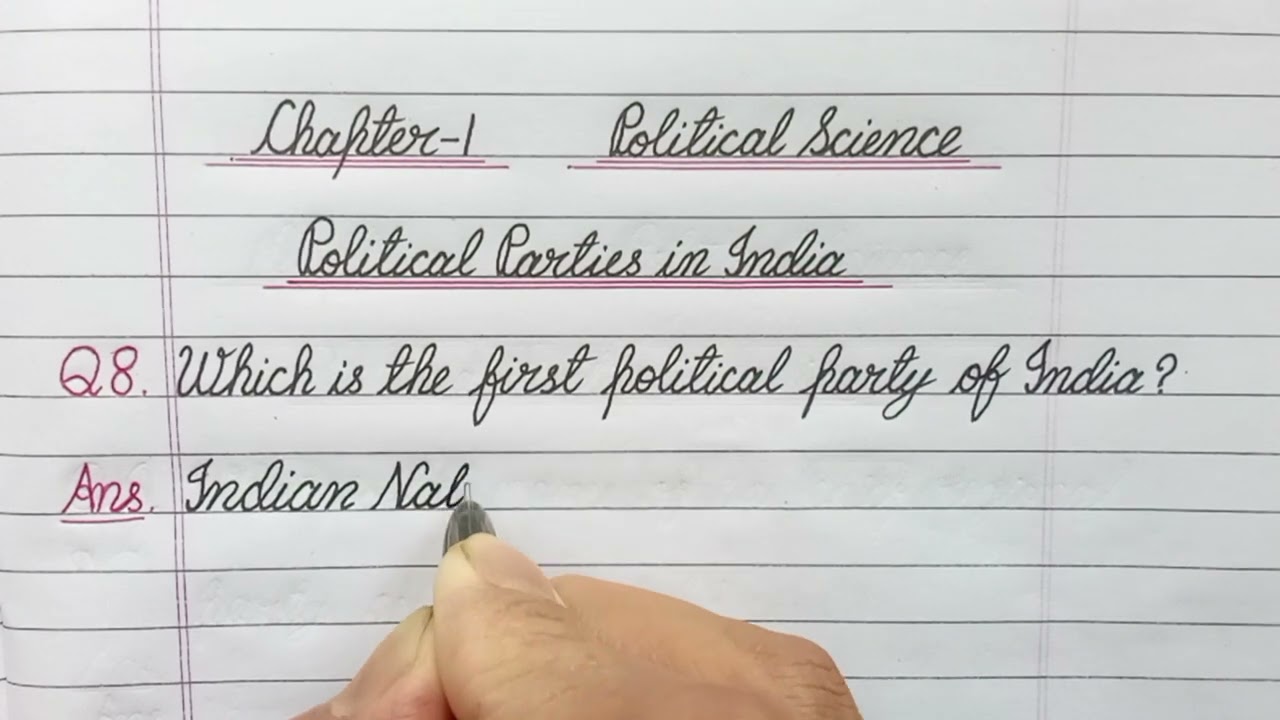 Chapter-1 Political Science
Political Parties in India
Q8. Which is the first political party of India?
Ans. Indian Nat